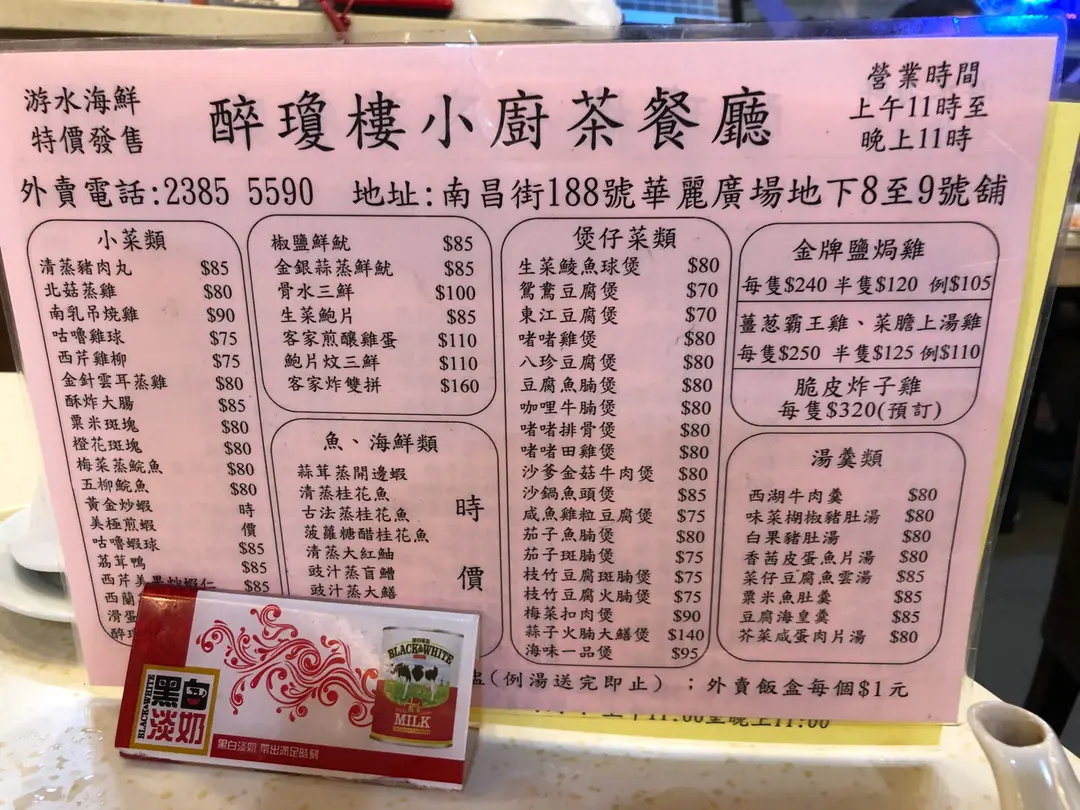 游水海鮮
特價發售
醉瓊樓小廚茶餐廳
營業時間
上午11時至
晚上11時
外賣電話:2385 5590 地址:南昌街188號華麗廣場地下8至9號舖
小菜類
清蒸豬肉丸 $85
北菇蒸雞 $80
南乳吊燒雞 $90
咕嚕雞球 $75
西芹雞柳 $75
金針雲耳蒸雞 $80
酥炸大腸 $85
粟米斑塊 $80
橙花斑塊 $80
梅菜蒸鯇魚 $80
五柳鯇魚 $80
黃金炒蝦 時
美極煎蝦 價
咕嚕蝦球 $85
荔茸鴨 $85
西芹美果炒蝦仁 $85
西蘭
滑蛋
醉
椒鹽鮮魷 $85
金銀蒜蒸鮮魷 $85
骨水三鮮 $100
生菜鮑片 $85
客家煎釀雞蛋 $110
鮑片炆三鮮 $110
客家炸雙拼 $160
魚、海鮮類
蒜茸蒸開邊蝦
清蒸桂花魚
古法蒸桂花魚
菠蘿糖醋桂花魚
清蒸大紅鮋
豉汁蒸盲鰽
豉汁蒸大鱔
時
價
煲仔菜類
生菜鯪魚球煲 $80
鴛鴦豆腐煲 $70
東江豆腐煲 $70
啫啫雞煲 $80
八珍豆腐煲 $80
豆腐魚腩煲 $80
咖哩牛腩煲 $80
啫啫排骨煲 $80
啫啫田雞煲 $80
沙爹金菇牛肉煲 $80
沙鍋魚頭煲 $85
咸魚雞粒豆腐煲 $75
茄子魚腩煲 $80
茄子斑腩煲 $75
枝竹豆腐斑腩煲 $75
枝竹豆腐火腩煲 $75
梅菜扣肉煲 $90
蒜子火腩大鱔煲 $140
海味一品煲 $95
金牌鹽焗雞
每隻$240 半隻$120 例$105
薑葱霸王雞、菜膽上湯雞
每隻$250 半隻$125 例$110
脆皮炸子雞
每隻$320(預訂)
湯羹類
西湖牛肉羹 $80
味菜椒椒豬肚湯 $80
白果豬肚湯 $80
香茜皮蛋魚片湯 $80
菜仔豆腐魚雲湯 $85
粟米魚肚羹 $85
豆腐海皇羹 $85
芥菜咸蛋肉片湯 $80
(例湯送完即止) ;外賣飯盒每個$1元
上午11:00至晚上11:00
BLACK&WHITE
黑白
淡奶
黑白淡奶 帶出滿足時刻
BLACK&WHITE
MILK